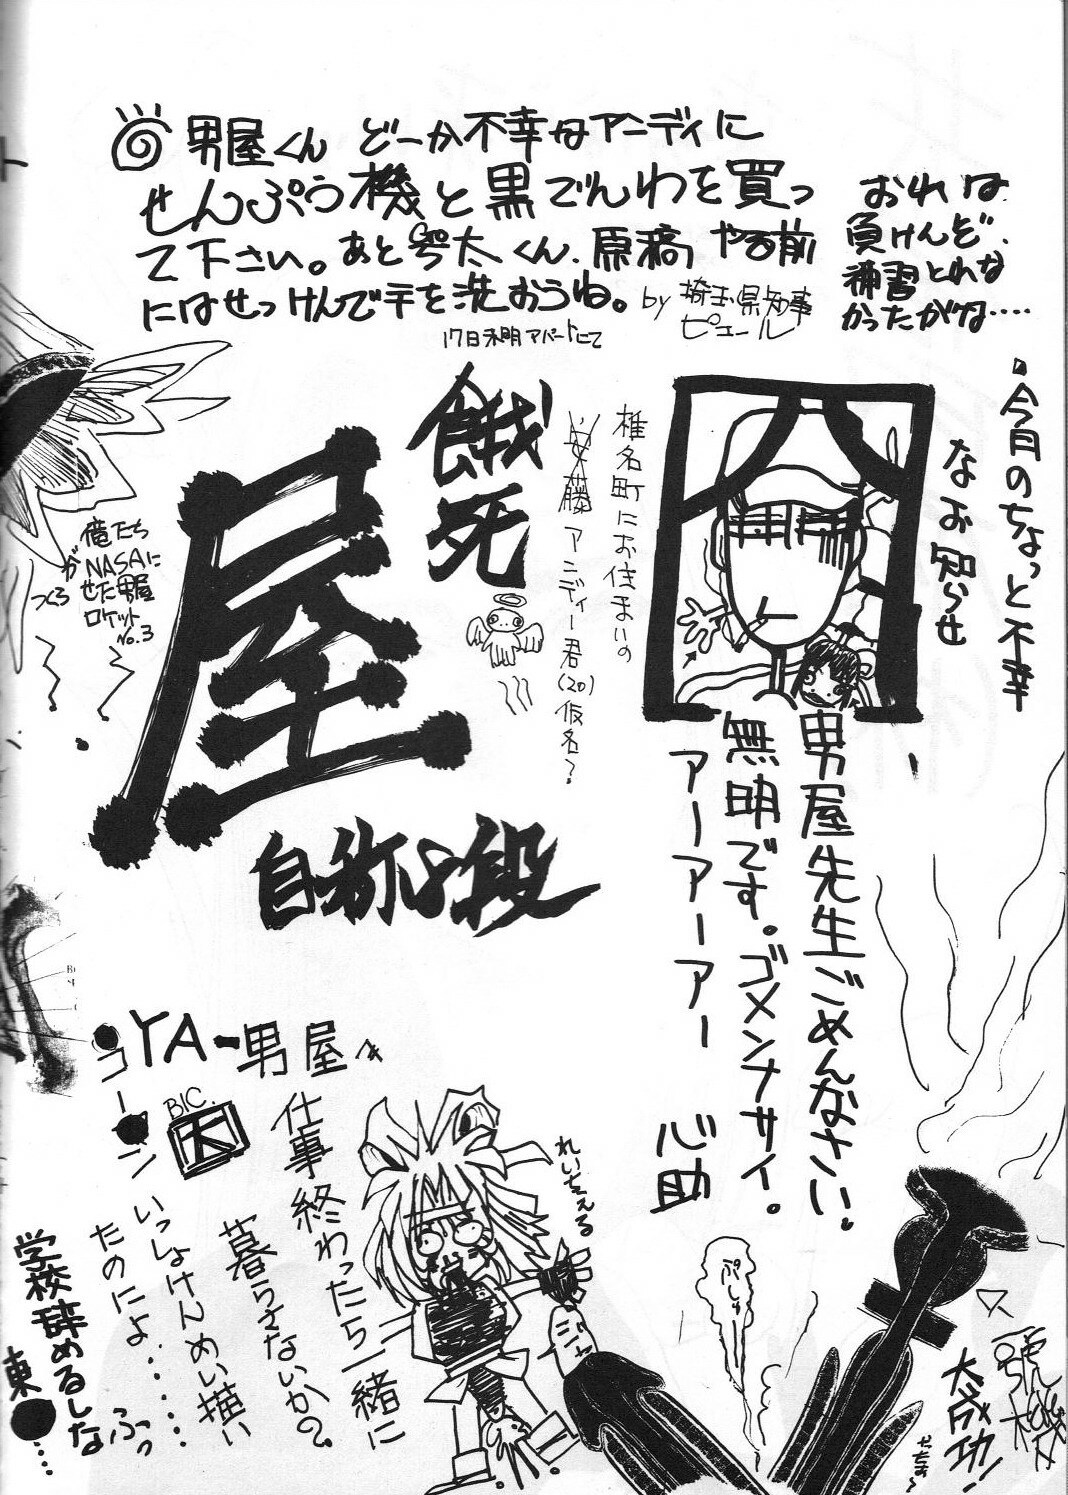 男屋くん どーか不幸なアニディに
せんぷう機と黒でんわを買っ
て下さい。あと号太くん、原稿やる前
にはせっけんで手を洗おうね。
by 埼玉県知事
ピエール
17日未明アパートにて
おれは
負けんぞ、
補習とれな
かったがな‥‥
今月のちょっと不幸
なお知らせ
椎名町にお住まいの
安藤アニディー君(20)仮名?
餓死
屋
自称心段
俺たち
がNASAに
つくらせた男屋
ロケット
No.3
男屋先生ごめんなさい。
無明です。ゴメンナサイ。
アーアアーアー
心助
YA-男屋
BIC.
仕事終わったら一緒に
暮らさないか?
いっしょけんめい描い
たのによ‥‥‥
ふっ
学校辞めるしな
東●‥
れいちぇる
ジャ
ぷしゅ
大成功!